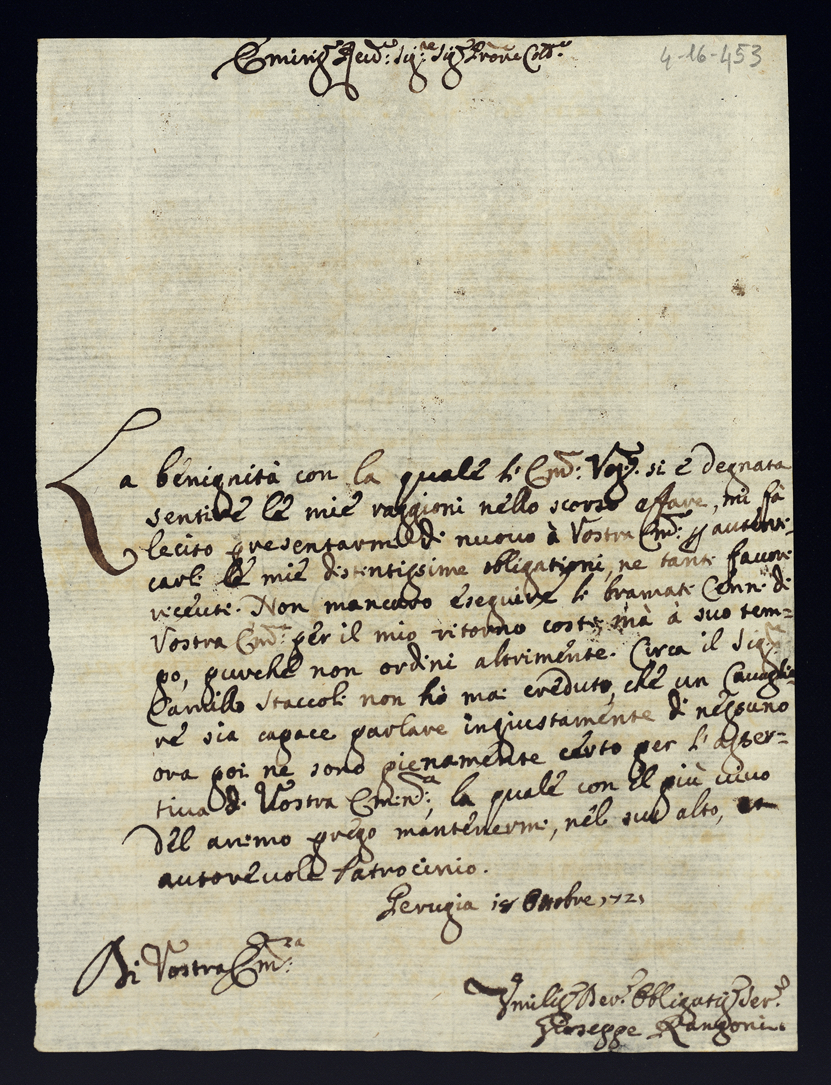 Emin.mo Reud.mo sig.re sig.re Prōne Col.mo
4-16-453
La benignità con la quale l' Em.a: V.ra si è degnata
sentire le mie raggioni nello scorso affare, mi fà
lecito presentarmeli di nuovo à Vostra Em.a:
carli le mie distentissime obligationi, ne tanti favori
riceuti. Non mancarò eseguire li bramati Cenni di
Vostra Em.a per il mio ritorno costì mà à suo tem=
po, purche non ordini altrimente. Circa il sig.re
Camillo Staccoli non hò mai creduto, che un Cavaglie
re sia capace parlare ingiustamente di nessuno
ora poi ne sono pienamente certo per l' asser=
tiva di Vostra Em.na, la quale con il più vivo
del animo prego mantenermi, nel suo alto, et
autorevole Patrocinio.
Perugia 18 Ottobre 1721
Di Vostra Em.za
Vmilis.o Dev.o Obligatis.o Ser.e
Giuseppe Rangoni